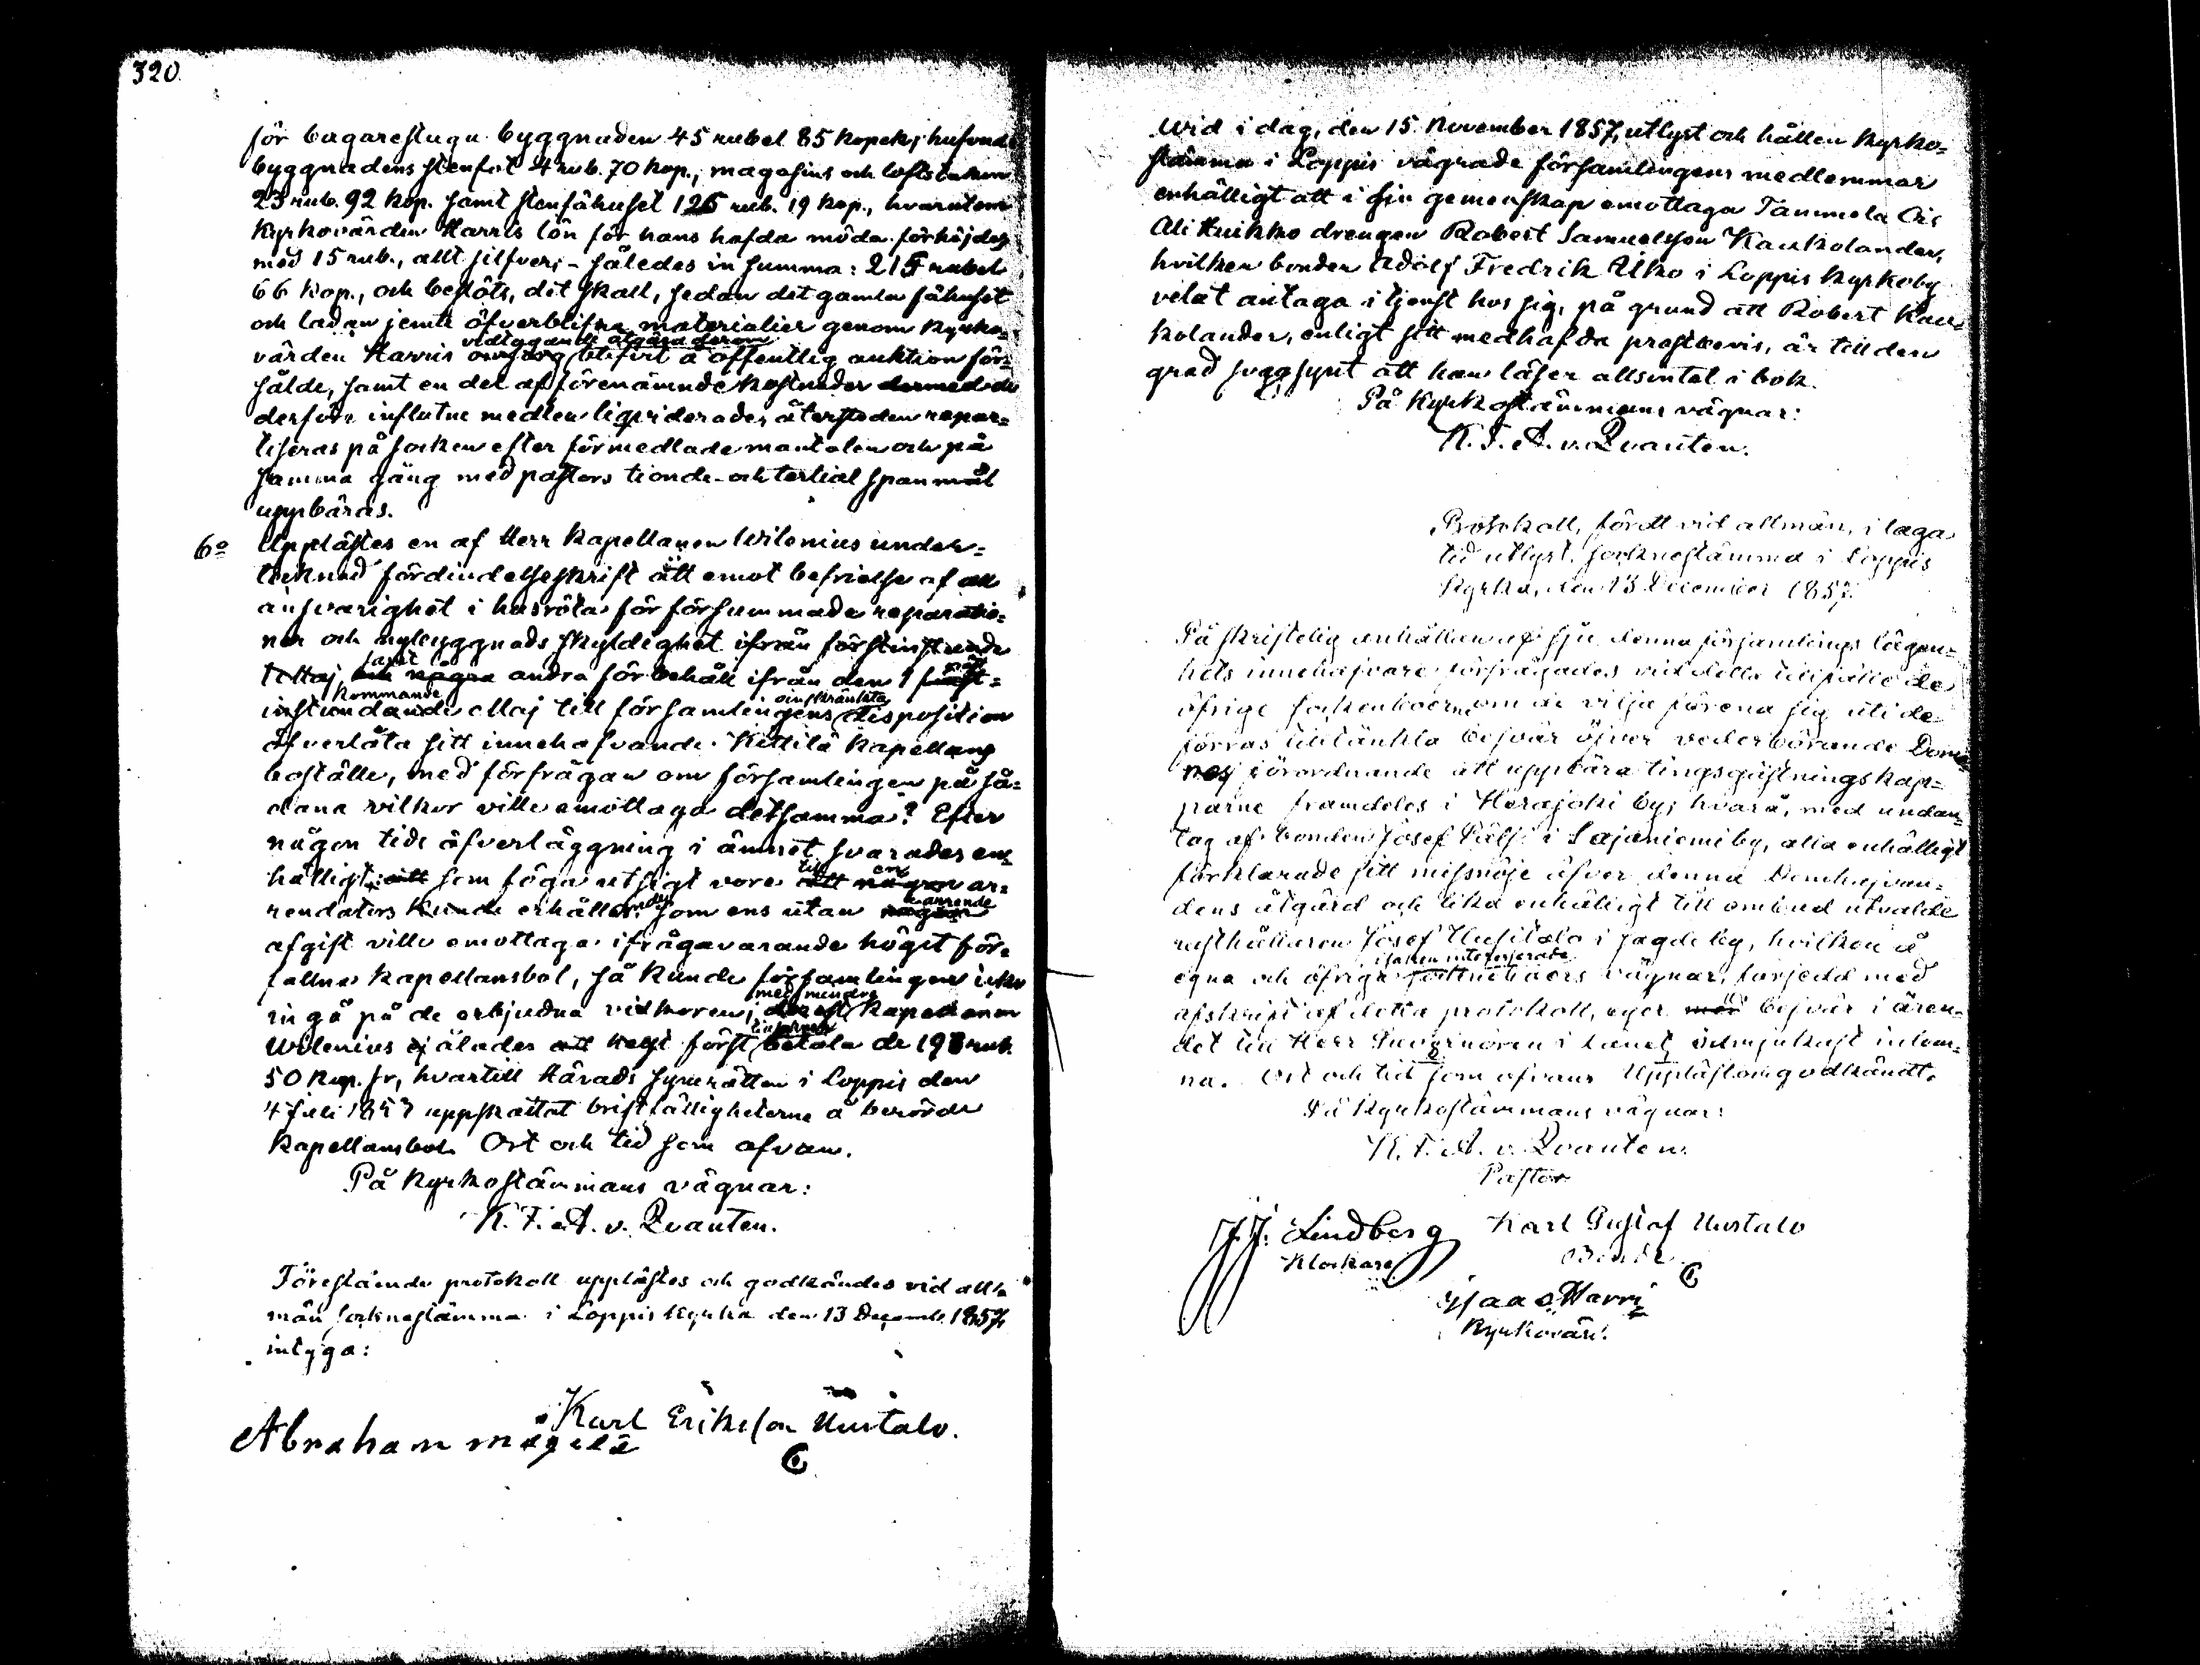 320.
för bagarestugu byggnaden 45 rubel 85 kopek; hufvud
byggnadens stenfot 4 rub. 70 kop., magasins och lofts
23 rub. 92 kop. samt stenfähuset 126 rub. 19 kop., hvarutom
Kyrkovärden Harris lön för hans hafda möda förhöjdes
med 15 rub., allt silfver; - således in summa: 215 rubel
66 kop., och beslöts, det skall, sedan det gamla fähuset
och ladan jemte öfverblifna materialier genom kyrko-
vidtagande åtgärd derom
värden Harris omsorg blifvit å offentlig auktion för-
sålde, samt en del af förenämnde kostnader dermed de
derföre influtne medlen liqviderades, återstoden repar-
tiseras på socken efter förmedlade mantalen och på
samma gång med pastors tionde- och tertial spanmål
uppbäras.
6o Upplästes en af Herr Kapellanen Wilenius under-
tecknad fördindelseskrift att emot befrielse af all
ansvarighet i husröta för försummade reparatio-
ner och nybyggnads skyldighet ifrån förstinstunde
samt
1 Maj, och några andra förbehåll ifrån den 1 först-
kommande oinskränkta
instundande Maj till församlingens disposition
öfverlåta sitt innehafvande Kittilä Kapellans
boställe, med förfrågan om församlingen på så-
dana vilkor ville emottaga detsamma? Efter
någon tids öfverläggning i ämnet svarades en-
till en
hälligt: att som föga utsigt vore att någon ar-
arrende
rendators kunde erhållas, som ens utan någon
afgift ville emottaga ifrågavarande högst för-
fallna Kapellansbol, så kunde församlingen icke
med mindre
ingå på de erbjudna vidkoren, derest Kapellanen
Wilenius ej ålades att högst först betala de 198 rub.
50 kop. sr, hvartill Härads synerätten i Loppis den
4 Juli 1857 uppskattat bristfälligheterne å berörde
Kapellansbol. Ort och tid som ofvan.
På Kyrkostämmans vägnar:
K. F. A. v. Qvanten.
Föreståënde protokoll upplästes och godkändes vid all-
män sockenstämma i Loppis kyrka den 13 Decemb. 1857,
intyga:
Karl Erikson Uustalo.
Abraham mägilä
Wid i dag, den 15 November 1857, utlyst och hållen kyrko-
stämma i Loppis vägrade församlingens medlemmar
enhälligt att i sin gemenskap emottaga Tammela
Ali Kuikko drengen Robert Samuelsson Kaukolander,
hvilken bonden Adolf Fredrik Uko i Loppis Kyrkoby
velat antaga i tjenst hos sig, på grund att Robert Kau-
kolander, enligt sitt medhafda prestbevis, är till den
grad svagsynt att han läser allsintet i bok.
På Kyrkostämmans vägnar:
K. F. A. v. Qvanten.
Protokoll, fördt vid allmän, i laga
tid utlyst, sockenestämma i Loppis
Kyrka, den 13 December 1857.
På skriftelig anhållan af sju denna församlings lägen-
hets innehafvare förfrågades vid detta tillfälle de
öfrige sockenboerne om de vilja förena sig uti de
förras tilltänkta besvär öfver vederbörande Dom-
förordnande att uppbära tingsgästningskap-
parne framdeles i Herajoki by; hvarå, med undan-
tag af bonden Josef Pälsi i Sajaniemi by, alla enhälligt
förklarade sitt missnöje öfver denna Domhafvan-
dens åtgärd och lika enhälligt till ombud utvalde
rusthållaren Josef Uusitalo i Sagde by, hvilken å
i saken interesserade
egna och öfriga vägnar, försedd med
afskrift af detta protokoll, eger med besvär i ären-
det till Herr Guvernören i Länet, inlem-
na. Ort och tid som ofvan. Uppläst och godkändt.
På Kyrkostämmans vägnar:
K. F. A. v. Qvanten.
Pastor
J. J. Lindberg
Klockare
Karl Gustaf Uustalo
Bonde
Isaac Harri
Kyrkovärd.